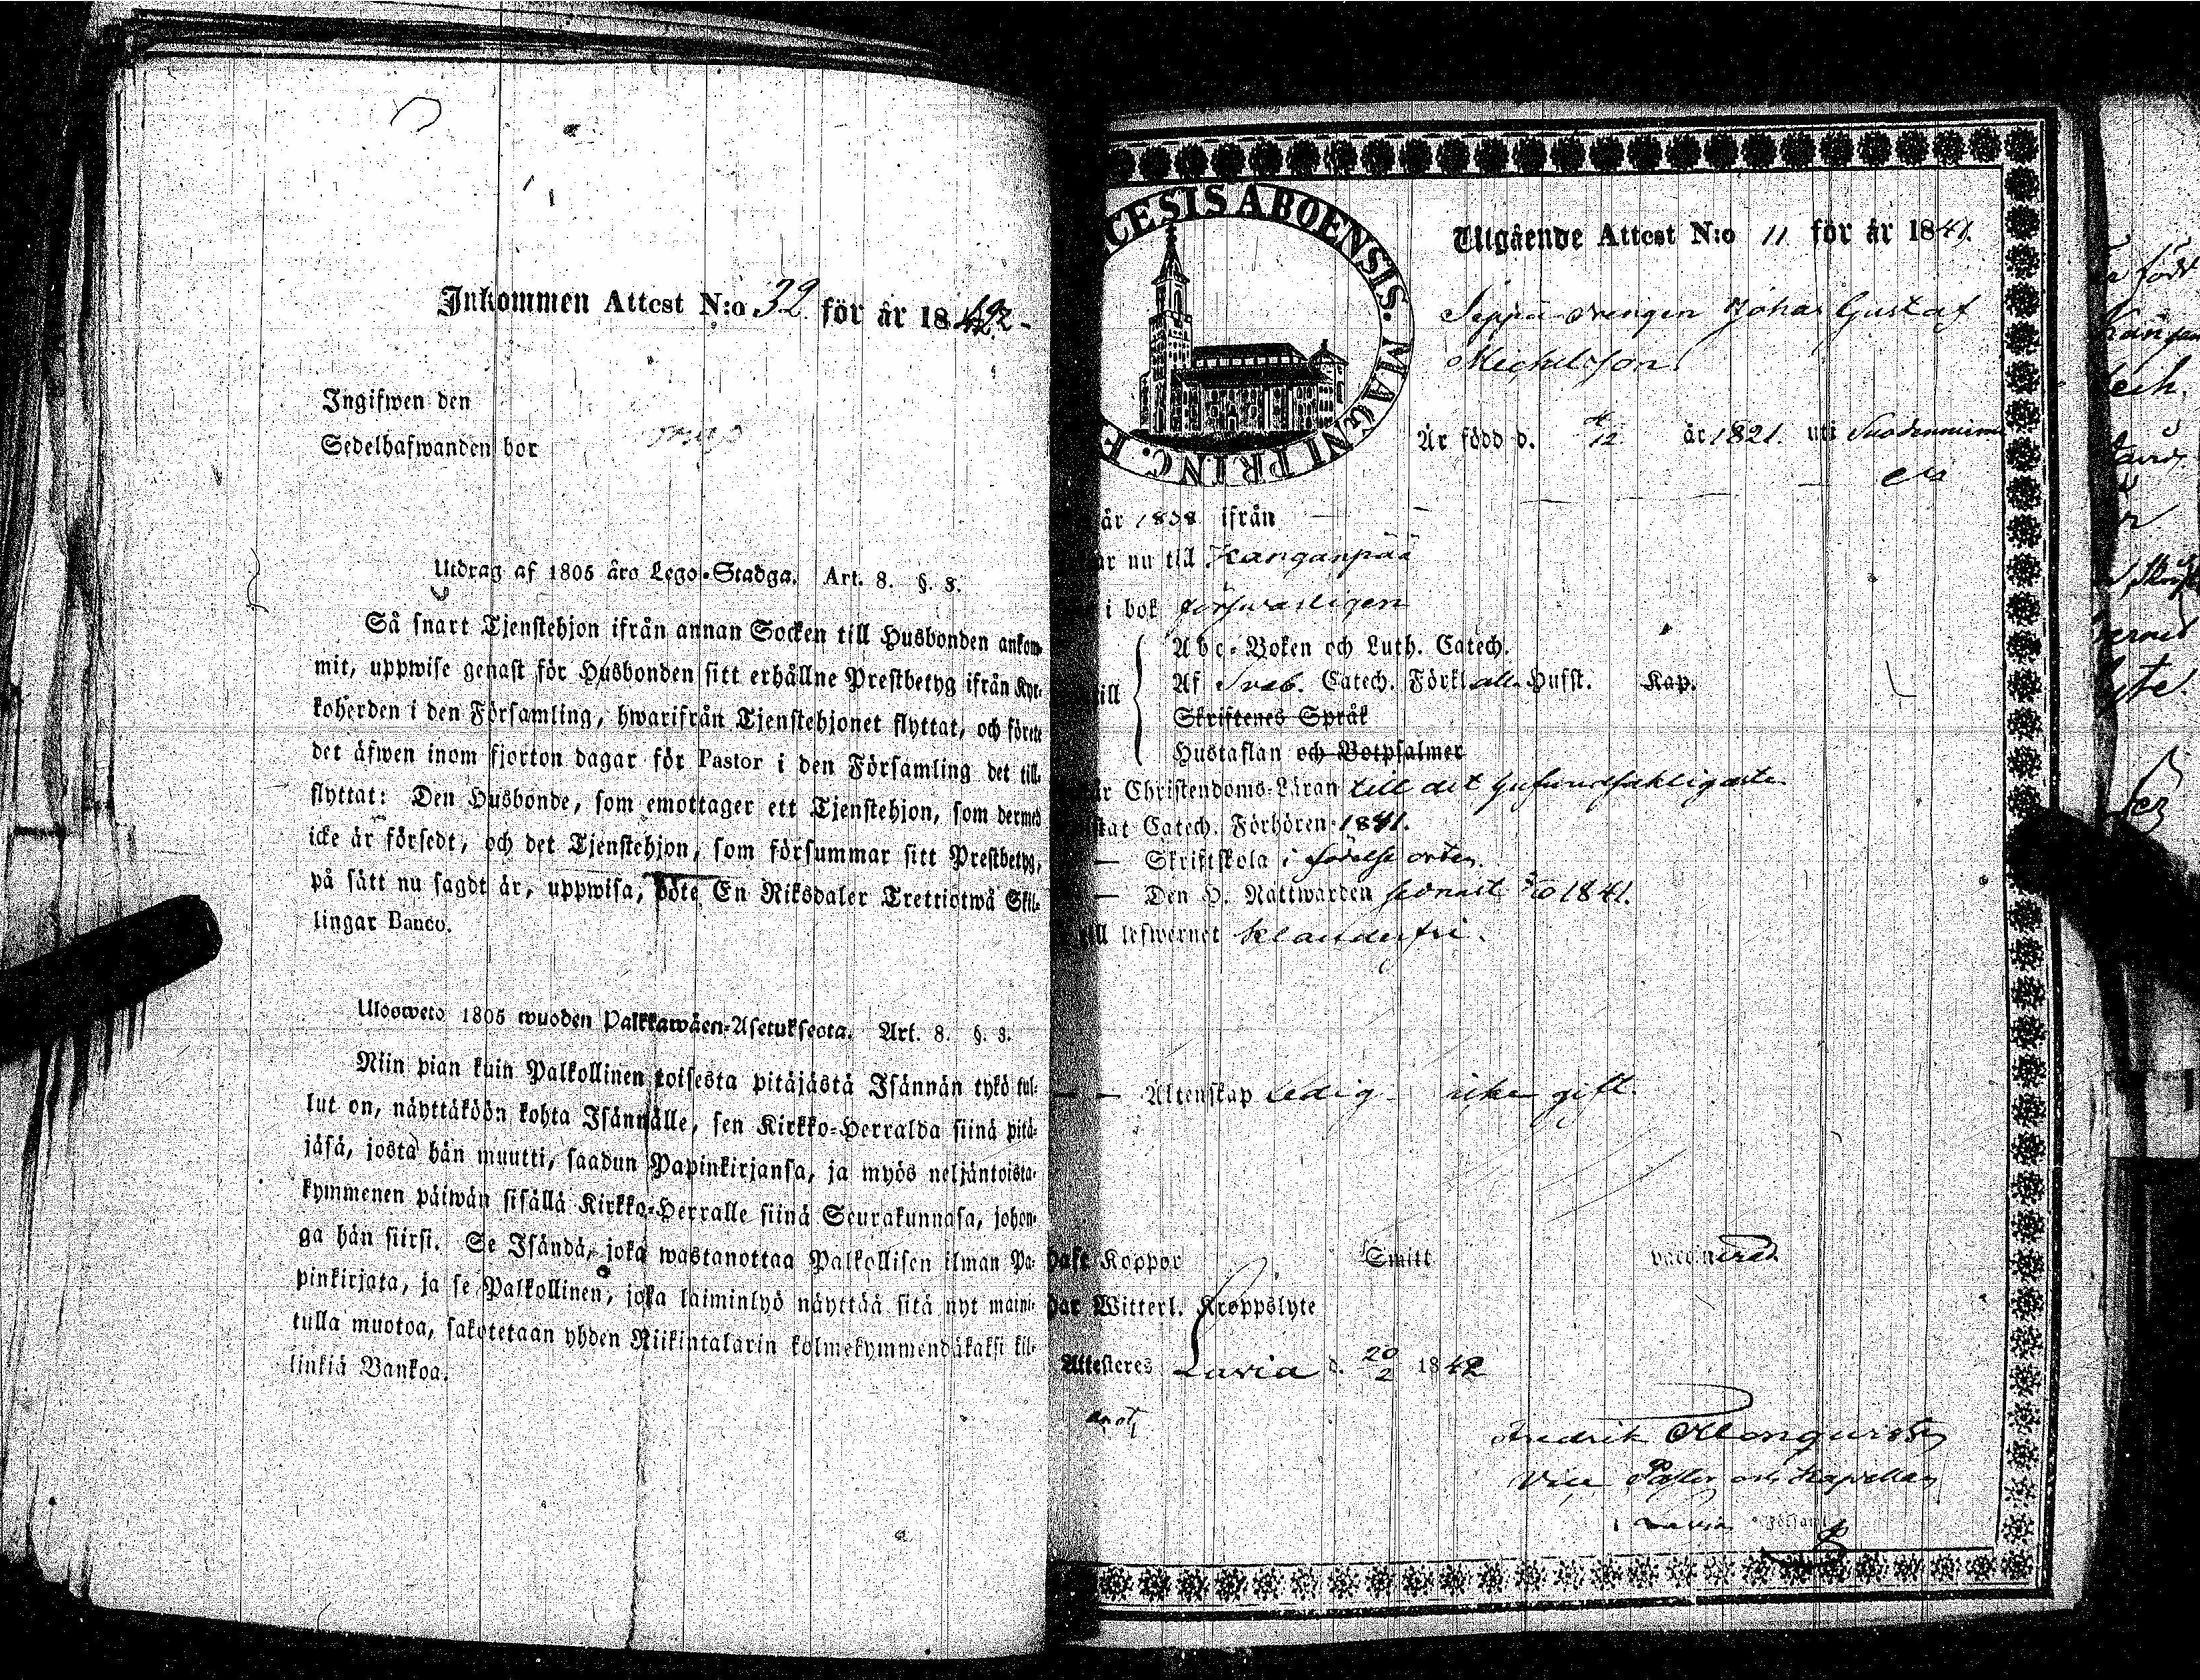 Inkommen Attest N:o 32 för år 1842
Ingifwen den
Sedelhafwanden bor
Utdrag af 1805 års Lego-Stadga. Art. 8. §. 3.
Så snart Tjenstehjon ifrån annan Socken till Husbonden ankom-
mit, uppwise genast för Husbonden sitt erhållne Prestbetyg ifrån Kyr-
koherden i den Församling, hwarifrån Tjenstehjonet flyttat, och förete
det äfwen inom fjorton dagar för Pastor i den Församling det till-
flyttat: Den Husbonde, som emottager ett Tjenstehjon, som dermed
icke är försedt, och det Tjenstehjon, som försummar sitt Prestbetyg,
på sätt nu sagdt är, uppwisa, böte En Riksdaler Trettiotwå Skil-
lingar Banco.
Ulosweto 1805 wuoden Palkkawäen-Asetuksesta. Art. 8. §. 3.
Niin pian kuin Palkollinen toisesta pitäjästä Isännän tykö tul-
lut on, näyttäköön kohta Isännälle, sen Kirkko-Herralda siinä pitä-
jäsä, josta hän muutti, saadun Papinkirjansa, ja myös neljäntoista-
kymmenen päiwän sisällä Kirkko-Herralle siinä Seurakunnasa, johon-
ga hän siirsi. Se Isändä, joka wastanottaa Palkollisen ilman Pa-
pinkirjata, ja se Palkollinen, joka laiminlyö näyttää sitä nyt maini-
tulla muotoa, sakotetaan yhden Riikintalarin kolmekymmendäkaksi kil-
linkiä Bankoa.
CESIS ABOENSIS. MAGNI PRINC. F
Utgående Attest N:o 11 för år 1841.
Seppä drengen Johan Gustaf
Michelsson
Är född d. 12 år 1821. uti Suodenniemi
år 1838 ifrån
ar nu till Kanganpää
i bok försvarligen
till
Abc-Boken och Luth. Catech.
Af Sveb. Catech. Förkl. alla Hufst. Kap.
Skriftenes Språk
Hustaflan och Botpsalmer
är Christendoms-Läran till det
stat Catech. Förhören 1841.
— Skriftskola i födelse orten.
— Den H. Nattwarden senast 1841.
till lefwernet klanderfri.
— — Äktenskap ledig icke gift.
haft Koppor Smitt vaccinerad.
har Witterl. Kroppslyte
Attesteres Lavia d. 20/2 1842
Fredrik
Vice Pastor och Kapellan
i Lavia Församl